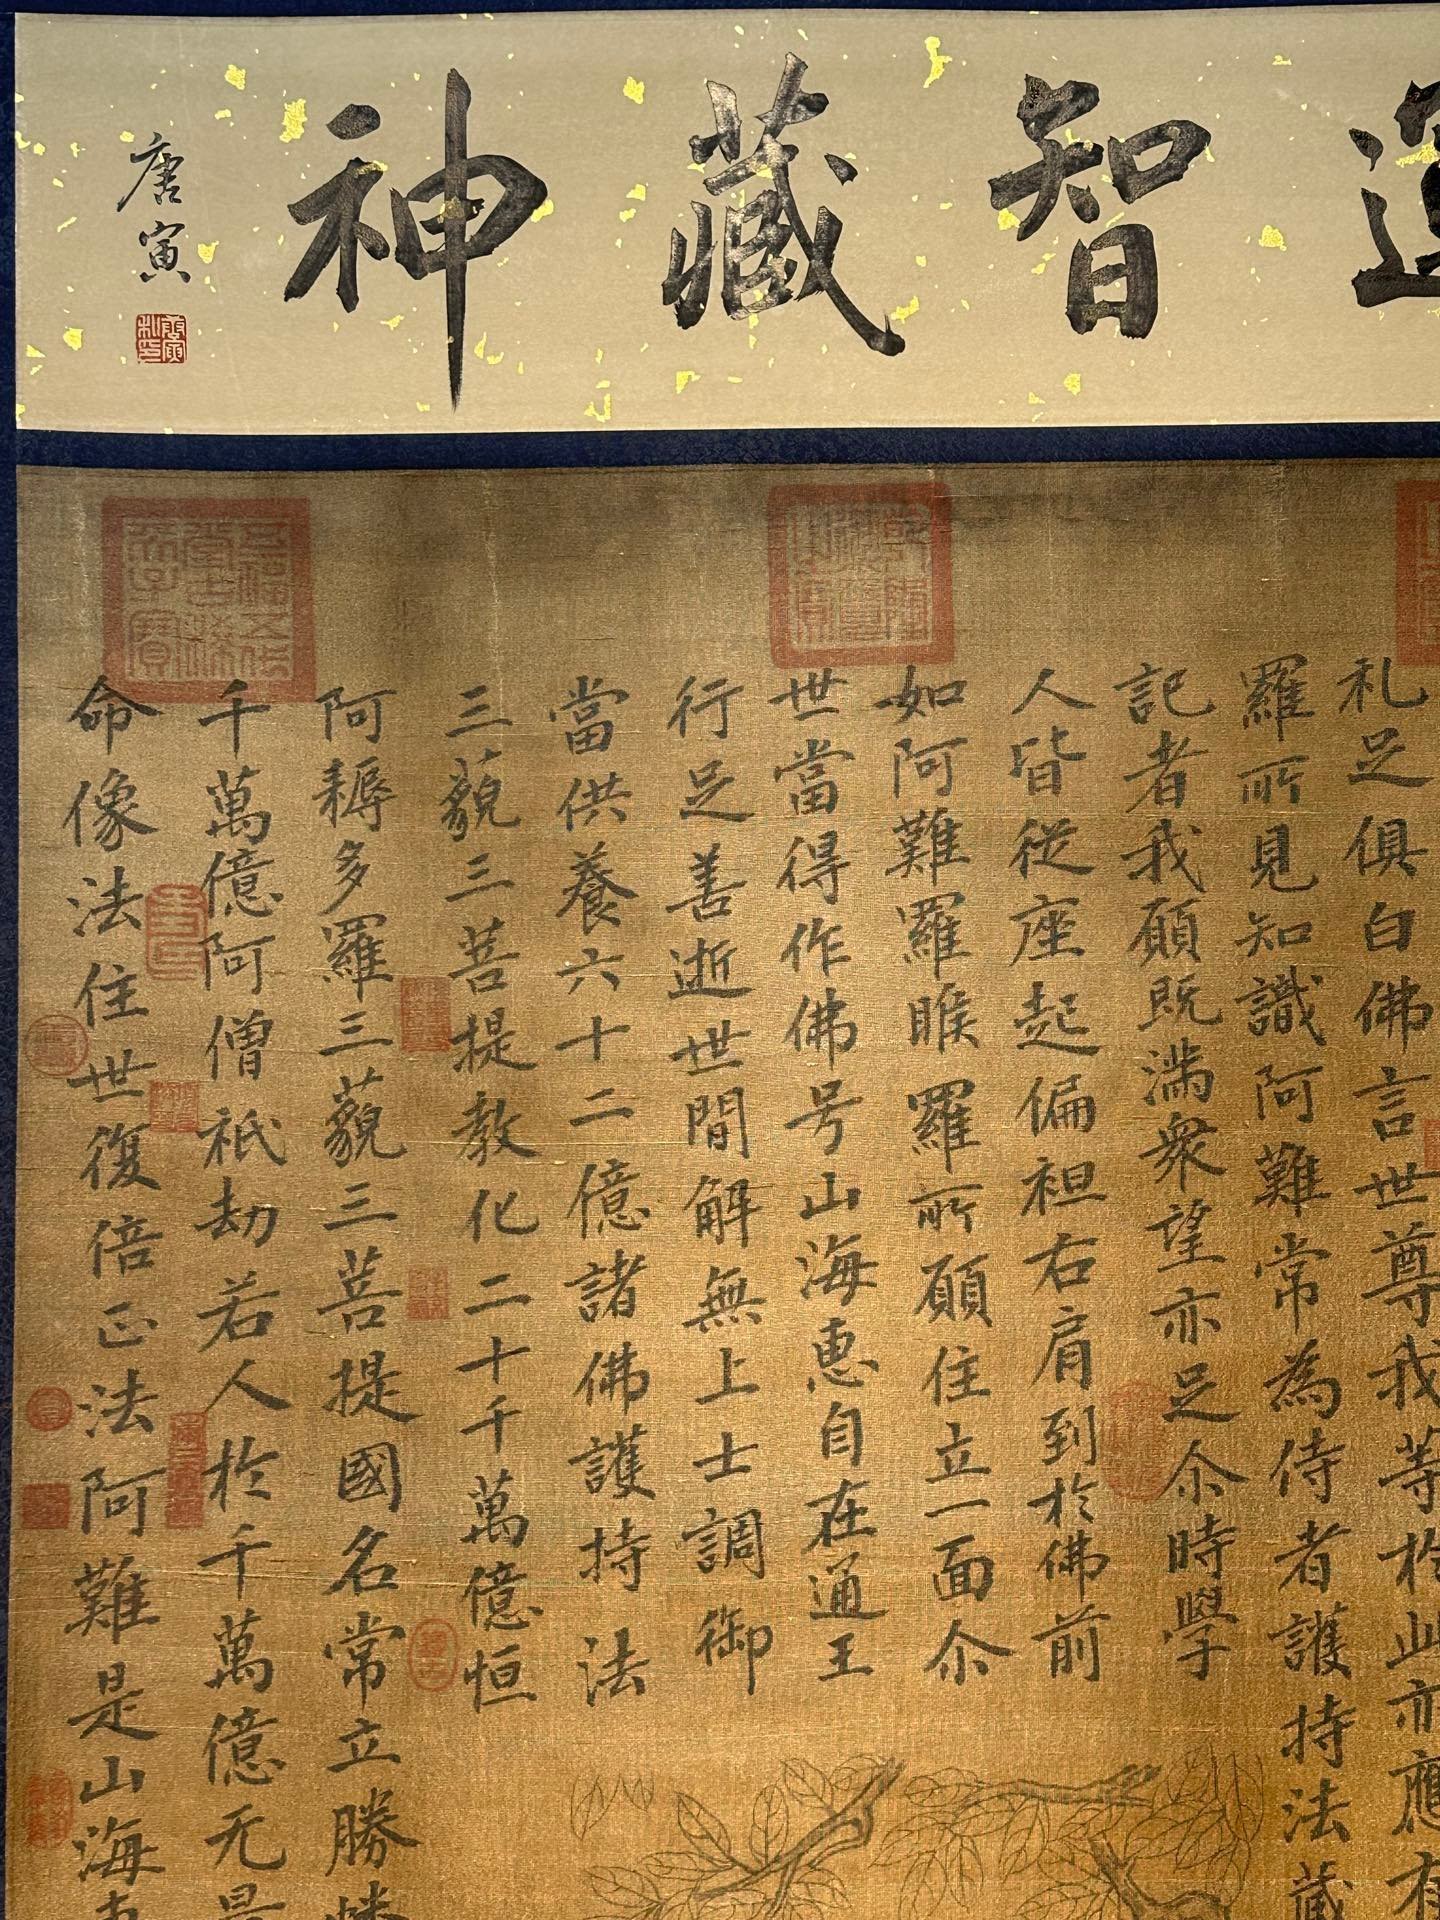 智藏神
唐寅
唐寅私印
乾隆御覽之寶
五福五代堂古稀天子寶
礼足俱白佛言世尊我等於此亦應有
羅所見知識阿難常為侍者護持法藏
記者我願既滿衆望亦足尒時學
人皆從座起偏袒右肩到於佛前
如阿難羅睺羅所願住立一面尒
世當得作佛号山海惠自在通王
行足善逝世間解無上士調御
當供養六十二億諸佛護持法
三藐三菩提教化二十千萬億恒
阿耨多羅三藐三菩提國名常立勝幡
千萬億阿僧祇劫若人於千萬億无量
命像法住世復倍正法阿難是山海惠